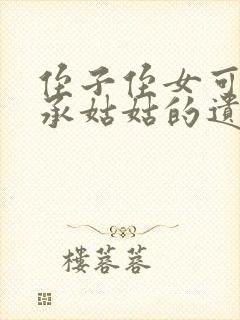 侄子侄女可
承姑姑的遗
樓蓉蓉